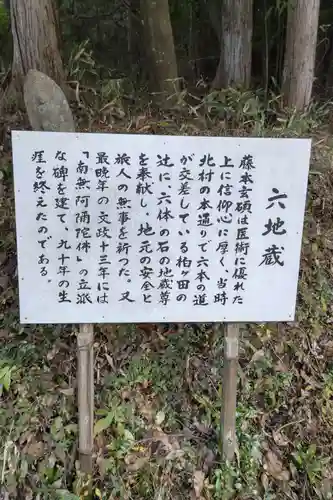 六地蔵
藤本玄碩は医術に優れた
上に信仰心に厚く、当時
北村の本通りで六本の道
が交差している柏ヶ田の
辻に、六体の石の地蔵尊
を奉献し、地元の安全と
旅人の無事を祈った。又
最晩年の文政十三年には
「南無阿彌陀佛」の立派
な碑を建て、九十年の生
涯を終えたのである。